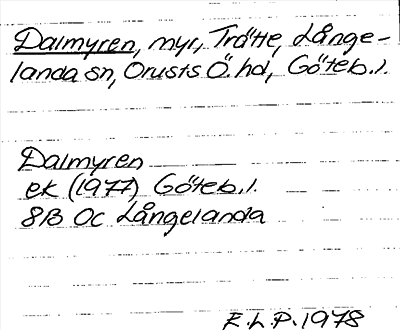 Dalmyren, myr, Trätte, Långe-
landa sn, Orusts Ö. hd, Göteb. l.
Dalmyren
ek (1977) Göteb. l.
8B 0c Långelanda
R.L.P. 1978